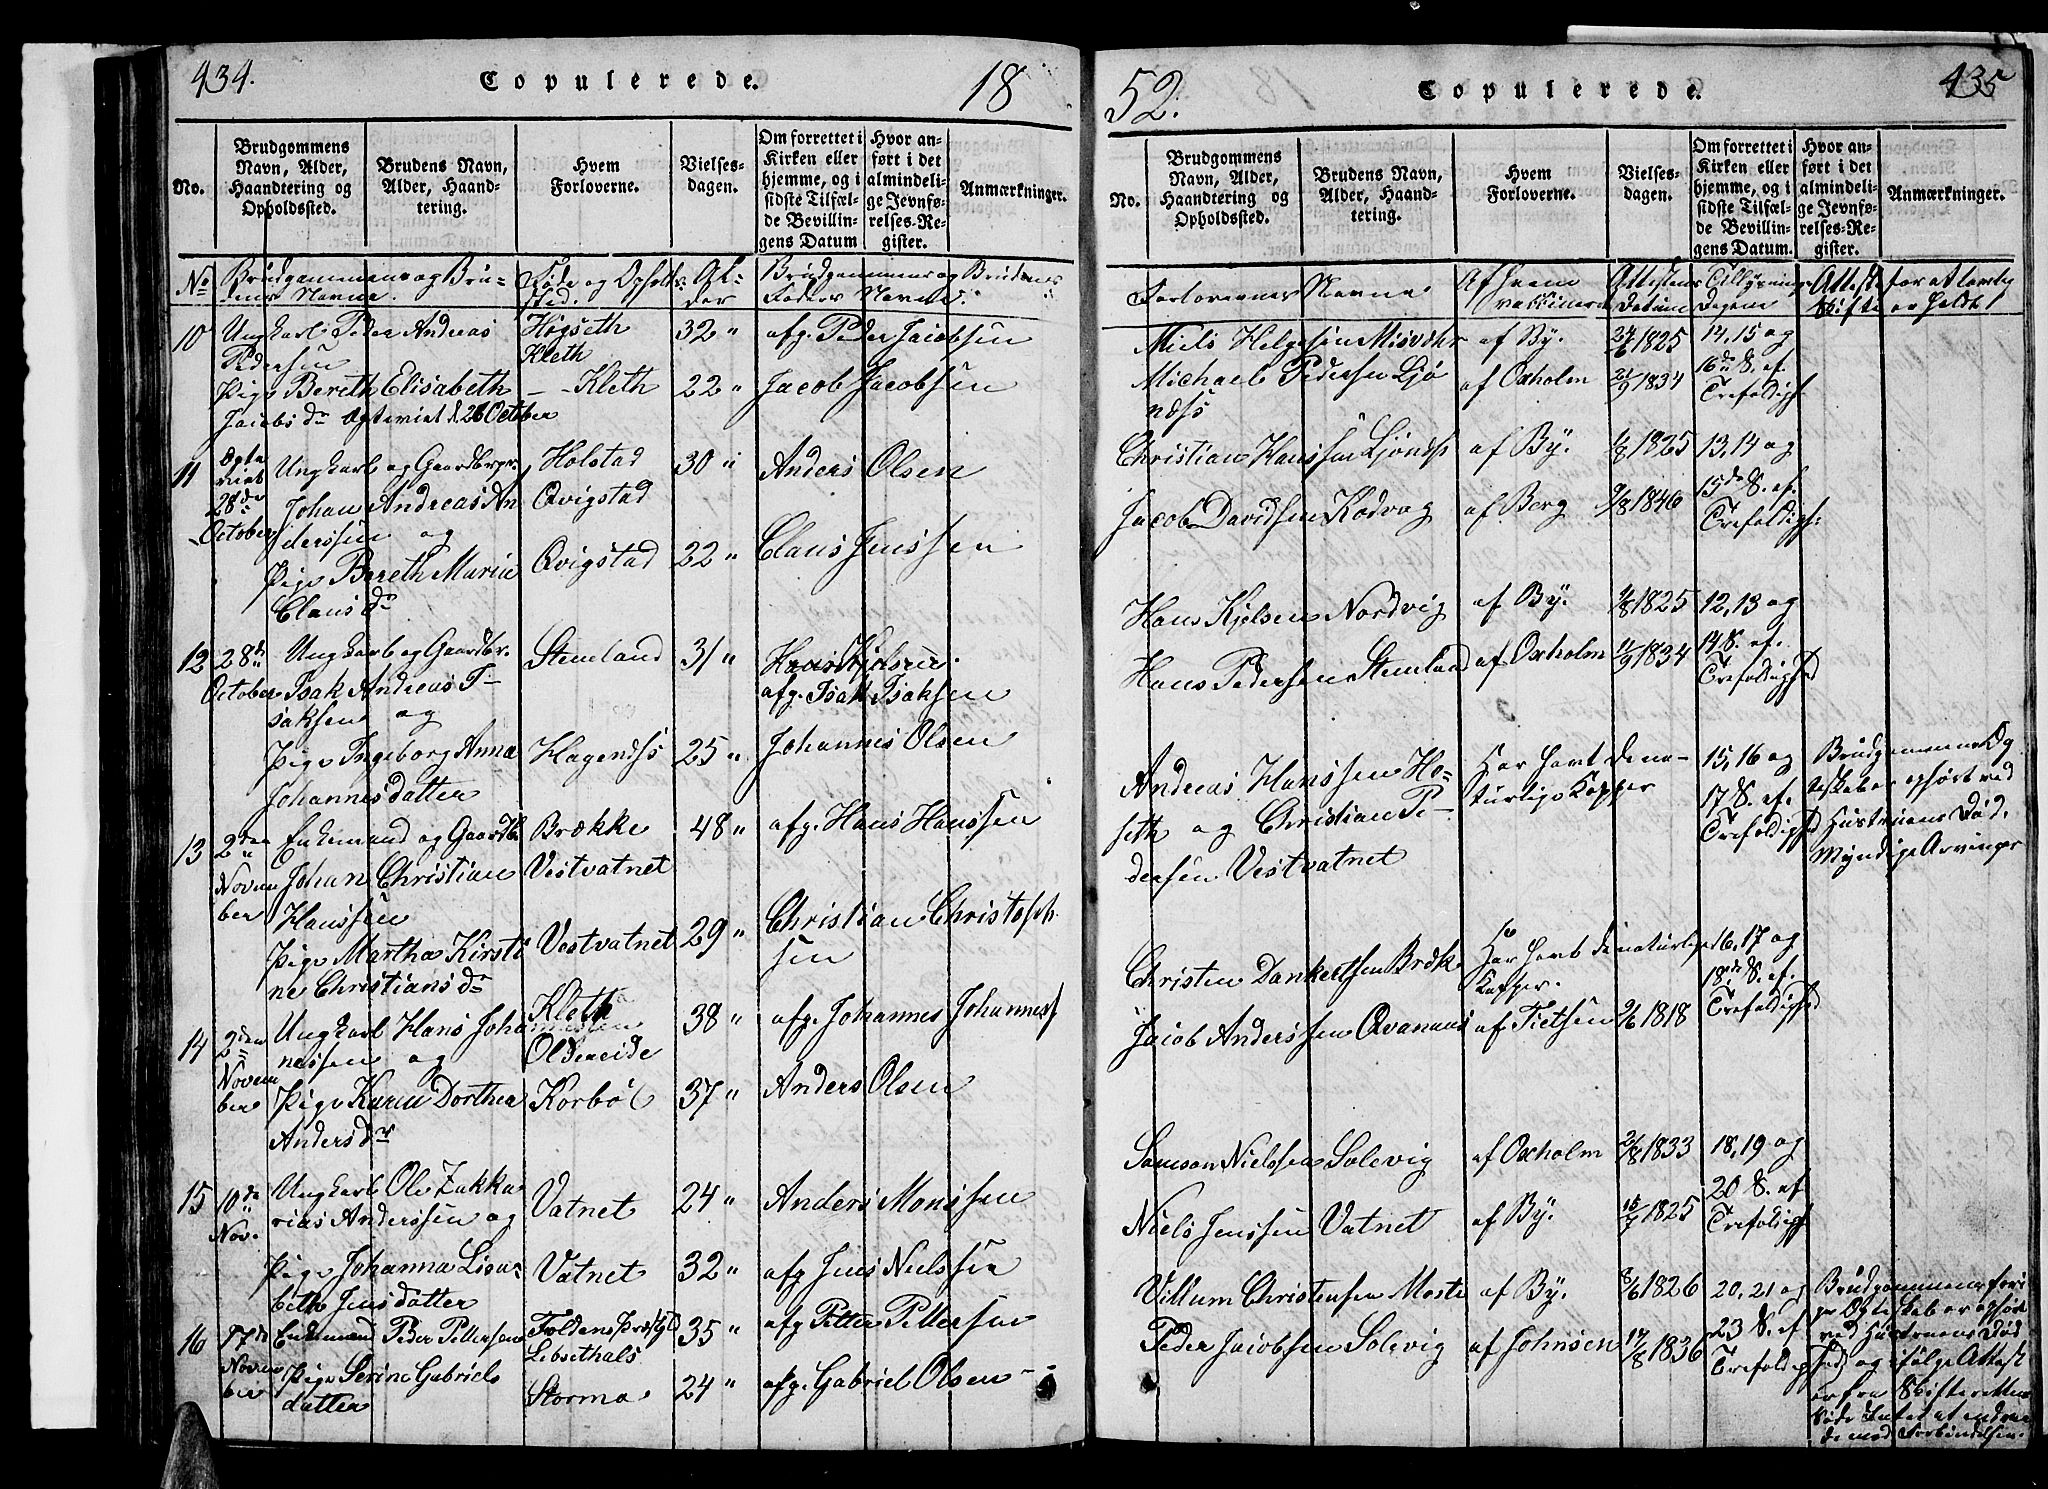 434.
Copulerede.
18
No.
Brudgommens Navn, Alder, Haandtering og Opholdssted.
Brudens Navn, Alder, Haandtering.
Hvem Forloverne.
Vielsesdagen.
Om forrettet i Kirken eller hjemme, og i sidste Tilfælde Bevillingens Datum
Hvor anført i det almindelige Jevnførelses-Register.
Anmærkninger.
No Brudgommens og Brudens Navne. Føde og Opholdssted. Alder Brudgommens og Brudens Faders Navne.
10 Ungkarl Peder Andreas Pedersen
Høgseth
Kleth
32 "
afg. Peder Jacobsen
Pige Bereth Elisabeth Jacobs dr Egteviet d. 26 October
Kleth
22 "
Jacob Jacobsen
11 Egteviet 28de October
Ungkarl og Gaardbrger
Johan Andreas Anderssen og
Holstad
Qvigstad
30 "
Anders Olsen
Pige Bereth Maria Claus dr
Qvigstad
22 "
Claus Jenssen
12 28de October
Ungkarl og Gaardbr.
Isak Andreas Isaksen og
Stemland
31 "
afg. Isak Isaksen
Pige Ingeborg Anna Johannesdatter
Hagenæss
25 "
Johannes Olsen
13 2den November
Enkemand og Gaardb.
Johan Christian Hanssen
Brække
Vestvatnet
48 "
afg. Hans Hanssen
Pige Martha Kirstine Christians dr
Vestvatnet
29 "
Christian Christophsen
14 2den November
Ungkarl Hans Johannessen og
Kleth
Oldereide
38 "
afg. Johannes Johanness
Pige Karen Dorthea Anders dr
Korbøl
37 "
Anders Olsen
15 10de Nov.
Ungkarl Ole Zakkarias Anderssen og
Vatnet
24 "
Anders Monssen
Pige Johanna Lisabeth Jensdatter
Vatnet
32 "
afg. Jens Nielssen
16 17de November
Enkemand Peder Pettersen
Foldens Præstgld
Lebsethals
35 "
afg. Petter Pettersen
Pige Serine Gabrielsdatter
Storma
24 "
afg. Gabriel Olsen
52.
Copulerede.
435
No.
Brudgommens Navn, Alder, Haandtering og Opholdssted.
Brudens Navn, Alder, Haandtering.
Hvem Forloverne.
Vielsesdagen.
Om forrettet i Kirken eller hjemme, og i sidste Tilfælde Bevillingens Datum.
Hvor anført i det almindelige Jevnførelses-Register.
Anmærkninger.
Forlovernes Navne. Af hvem vaccineret Attestens Datum Tillysnings Dagene Attest for at lovlig Skifte er holdt
Niels Helgesen Misvær af By. 24/6 1825 14, 15 og
Michael Pedersen Ljønæss af Oxholm 21/9 1834 16de S. ef. Trefoldigh.
Christian Hanssen Ljønæss af By. 1/8 1825 13, 14 og
Jacob Davidsen Kodvag af Berg 9/8 1846 15de S. ef. Trefoldigh:
Hans Kjelsen Nordvig af By. 1/8 1825 12, 13 og
Hans Pedersen Stemland af Oxholm 11/9 1834 14 S. ef. Trefoldighed
Andreas Hanssen Høseth og Christian Pedersen Vestvatnet
Har havt de naturlige Kopper
15, 16 og 17 S. ef. Trefoldighed
Brudgommens Egteskab er ophørt ved Hustruens Død, Myndige Arvinger
Christen Dankertsen Bræk Har havt de naturlige Kopper. 16, 17 og
Jacob Anderssen Qvanaas af Tietsen 2/6 1818 18de S. ef. Trefoldighed
Samson Nielssen Solevig af Oxholm 2/8 1833 18, 19 og
Niels Jenssen Vatnet af By. 15/7 1825 20 S. ef Trefoldigh
Villum Christensen Moste af By. 8/6 1826 20, 21 og
Peder Jacobsen Solevig af Johnsen 17/8 1836 23 S. ef Trefoldighed
Brudgommens forige Egteskab er ophørt ved Hustruens Død og ifølge Attest er fra Skifterettens Side Intet at indvende mod Forbindelsen.